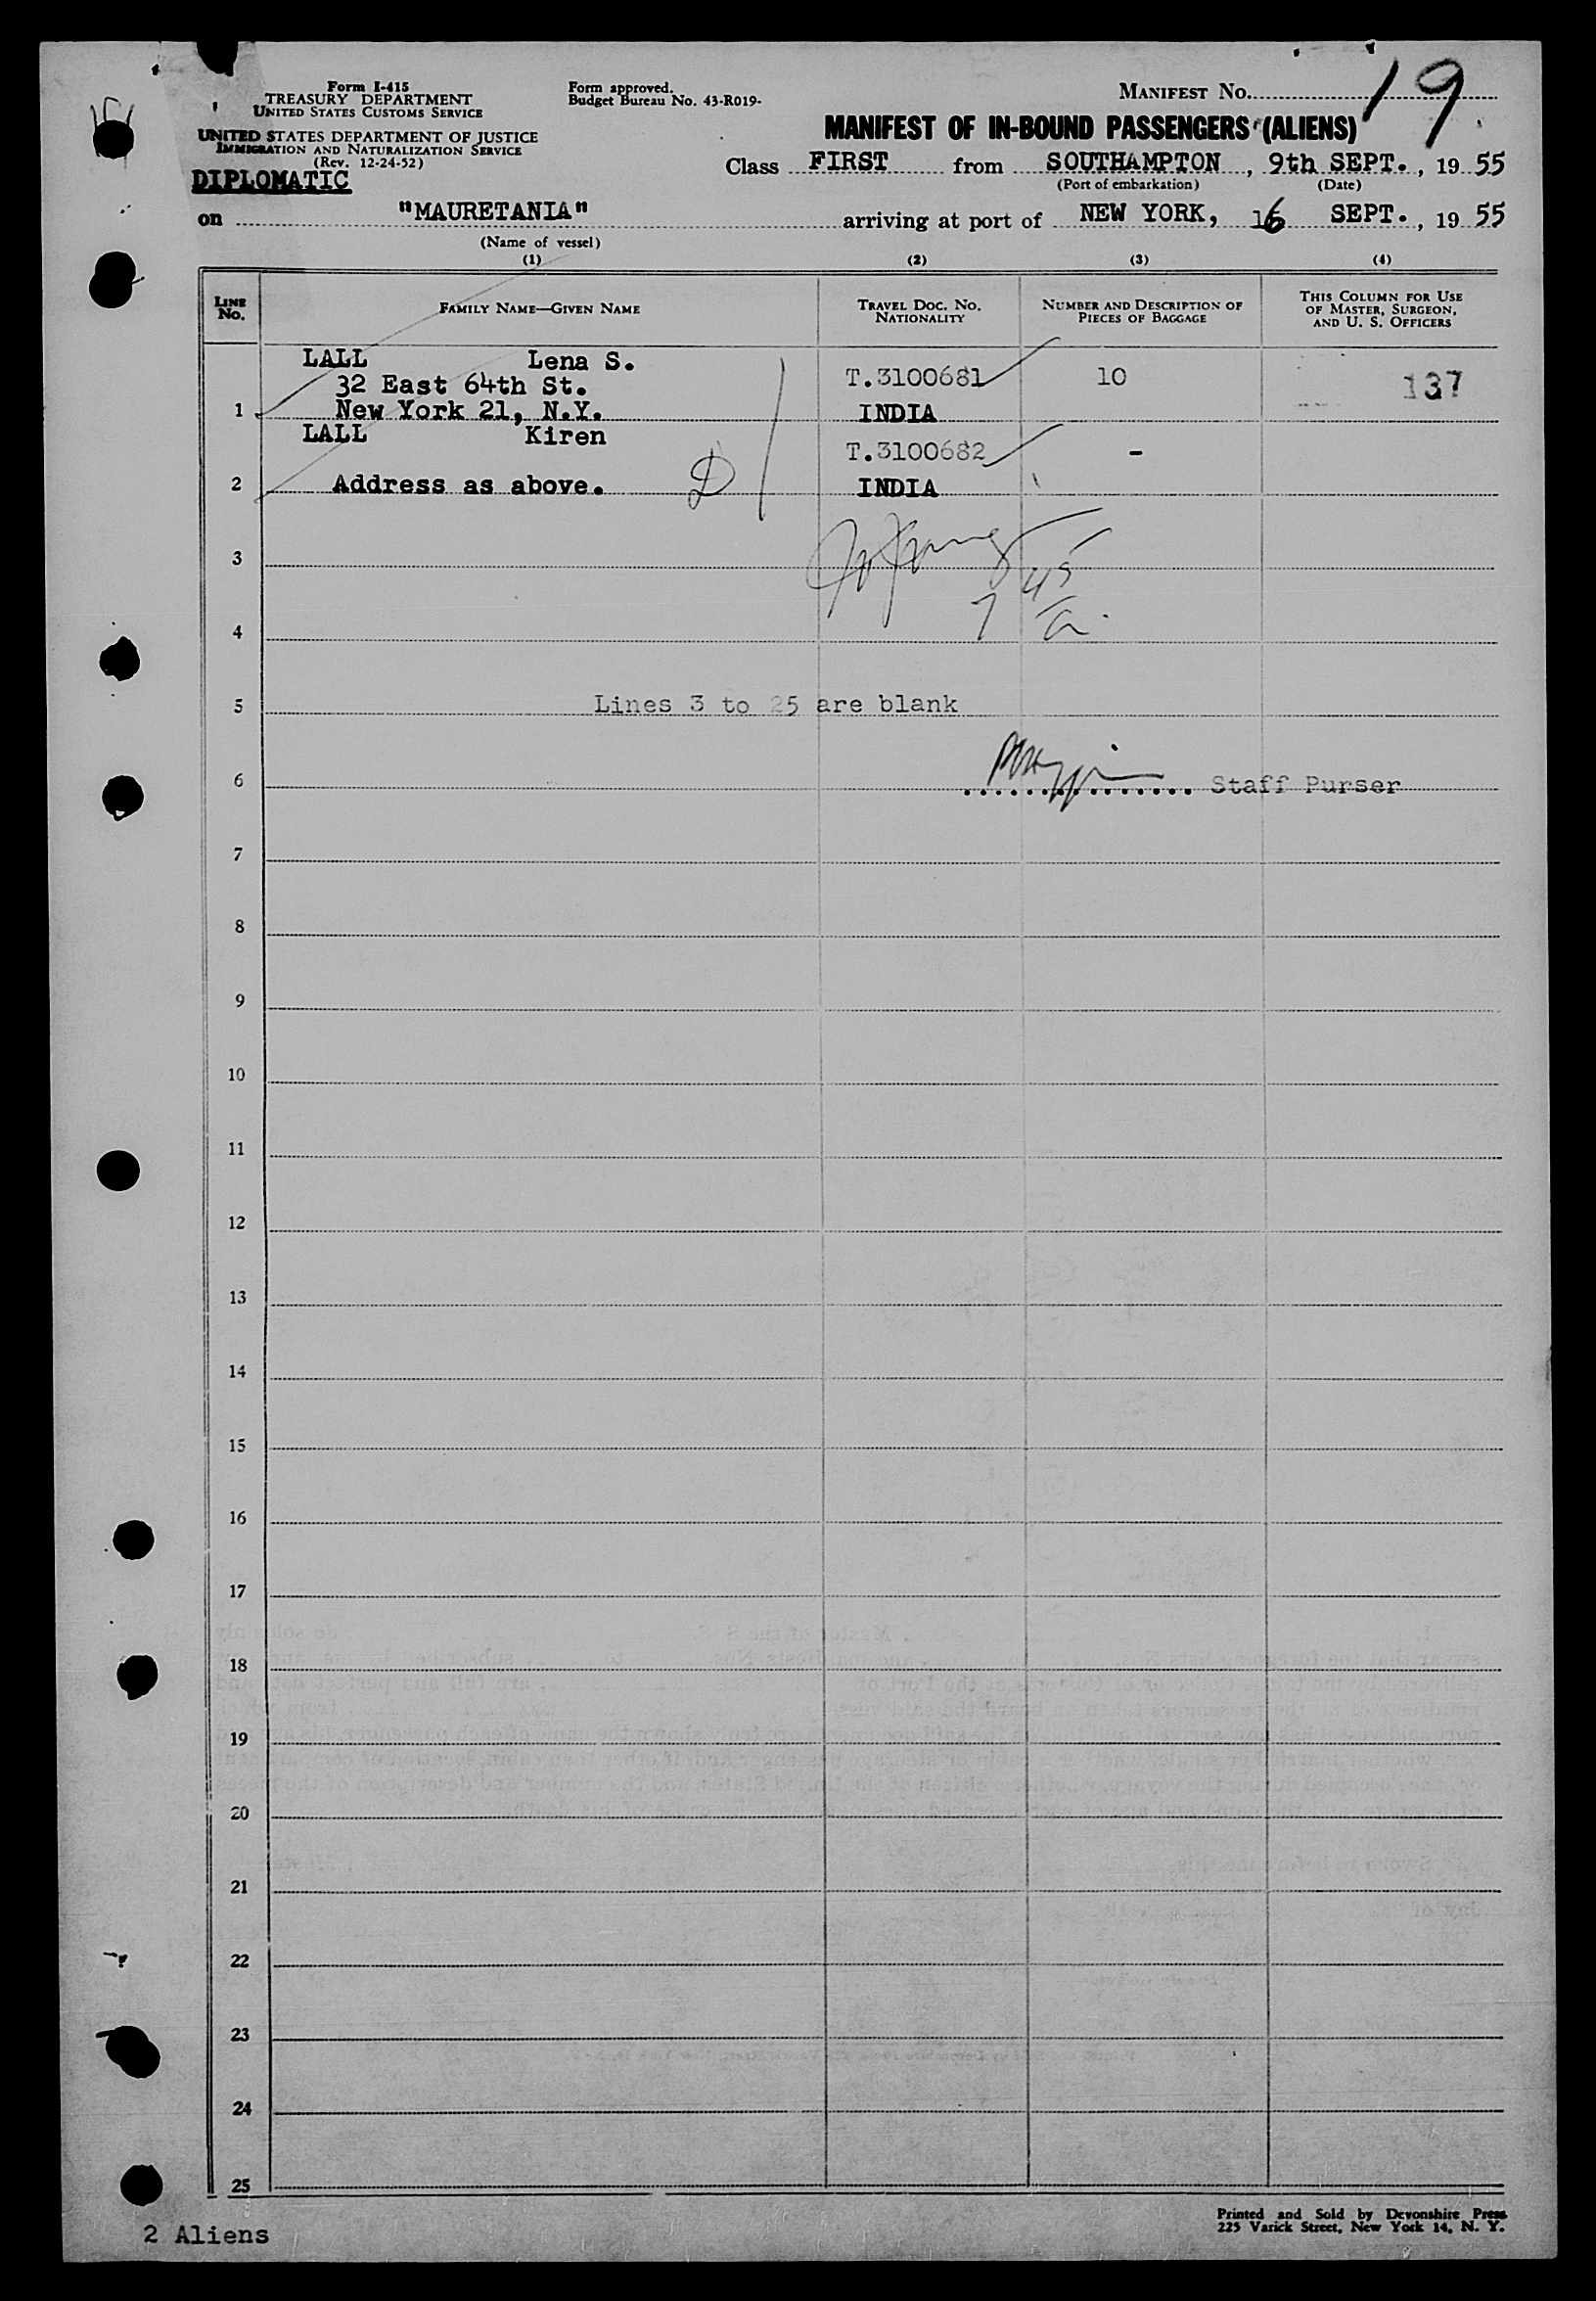 Form I-415
TREASURY DEPARTMENT
UNITED STATES CUSTOMS SERVICE
UNITED STATES DEPARTMENT OF JUSTICE
IMMIGRATION AND NATURALIZATION SERVICE
(Rev. 12-24-52)
DIPLOMATIC
Form approved.
Budget Bureau No. 43-R019-
MANIFEST No. 19
MANIFEST OF IN-BOUND PASSENGERS (ALIENS)
Class FIRST from SOUTHAMPTON, 9th SEPT., 1955
(Port of embarkation) (Date)
on "MAURETANIA" arriving at port of NEW YORK, 16 SEPT., 1955
(Name of vessel)
(1) (2) (3) (4)
LINE No. FAMILY NAME—GIVEN NAME TRAVEL DOC. NO. NATIONALITY NUMBER AND DESCRIPTION OF PIECES OF BAGGAGE THIS COLUMN FOR USE OF MASTER, SURGEON, AND U. S. OFFICERS
LALL Lena S.
32 East 64th St. T.3100681 10 137
1 New York 21, N.Y. INDIA
LALL Kiren
T.3100682 -
2 Address as above. D INDIA
3
45
4 7
5 Lines 3 to 25 are blank
6 Staff Purser
7
8
9
10
11
12
13
14
15
16
17
18
19
20
21
22
23
24
25
2 Aliens
Printed and Sold by Devonshire Press
225 Varick Street, New York 14, N. Y.